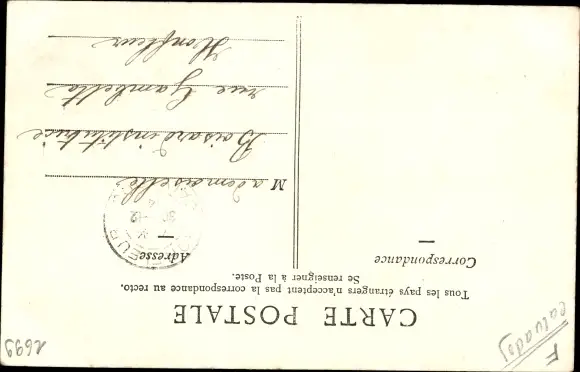 F
calvados
CARTE POSTALE
Tous les pays étrangers n'acceptent pas la correspondance au recto.
Se renseigner à la Poste.
Correspondance
Adresse
Mademoiselle
Boisard institutrice
rue Gambetta
Honfleur
2699